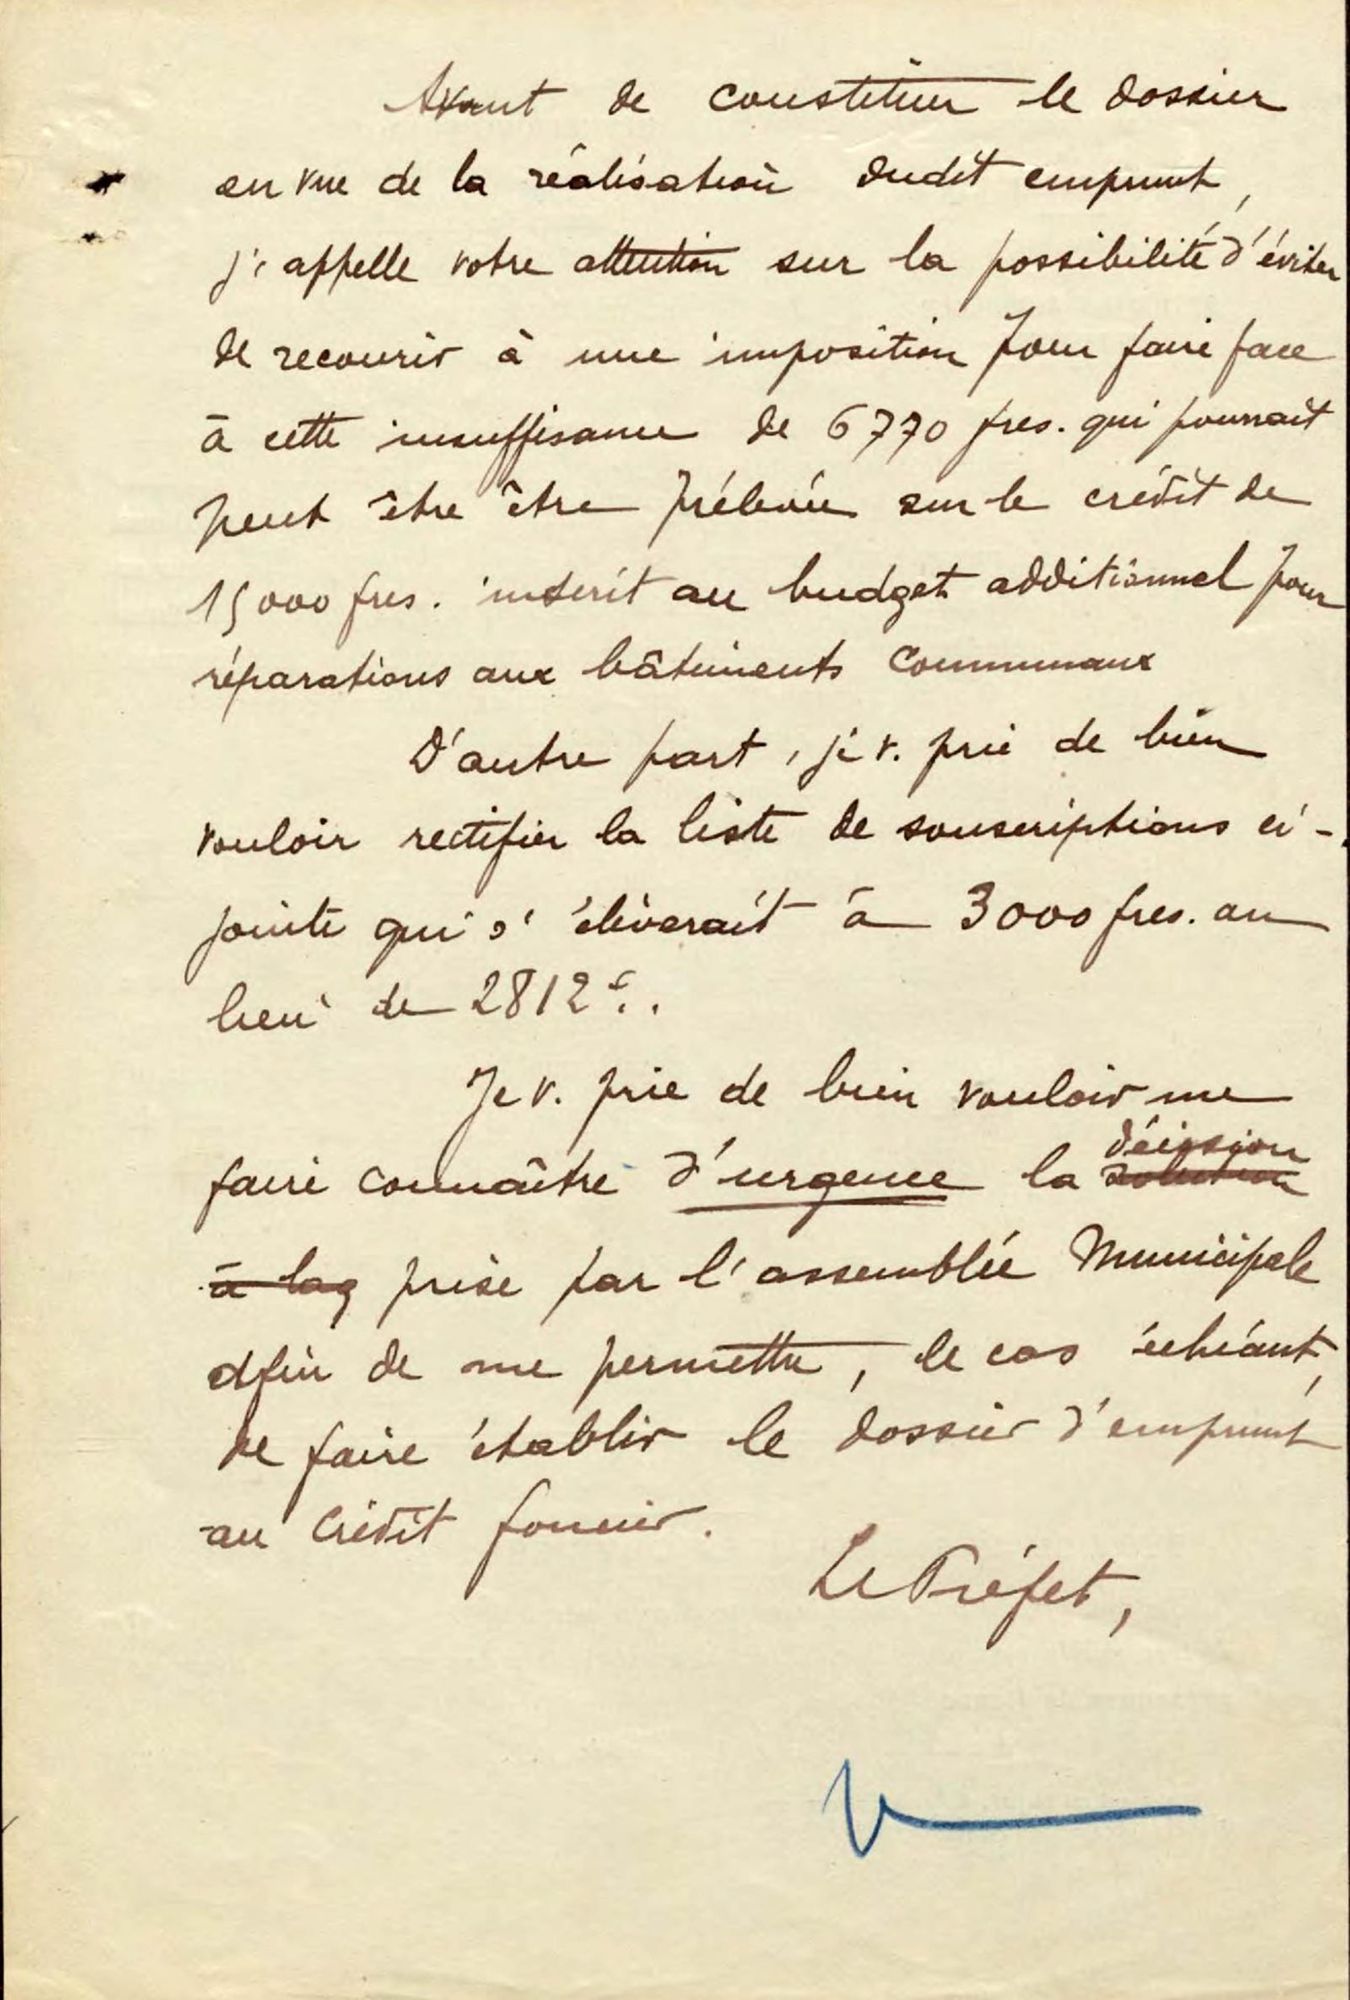 Avant de constituer le dossier
en vue de la réalisation dudit emprunt,
j'appelle votre attention sur la possibilité d'éviter
de recourir à une imposition pour faire face
à cette insuffisance de 6770 frcs. qui pourrait
peut être être prélevée sur le crédit de
15000 frcs. inscrit au budget additionnel pour
réparations aux bâtiments communaux
D'autre part, je v. prie de bien
vouloir rectifier la liste de souscriptions ci-
jointe qui s'élèverait à 3000 frcs. au
lieu de 2812 f..
Je v. prie de bien vouloir me
faire connaître d'urgence la solution décision
à la prise par l'assemblée Municipale
afin de me permettre, le cas échéant,
de faire établir le dossier d'emprunt
au Crédit foncier.
Le Préfet,